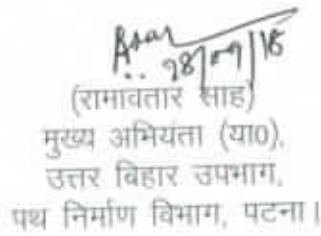 28/09/18
(रामावतार साह)
मुख्य अभियंता (या0),
उत्तर बिहार उपभाग,
पथ निर्माण विभाग, पटना।